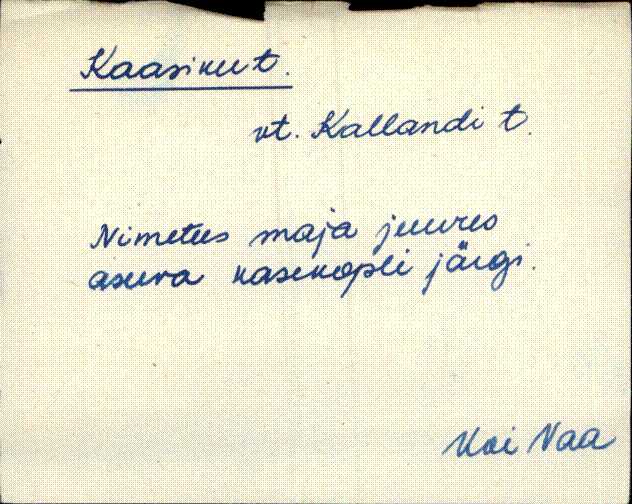 Kaasiku t.
vt. Kallandi t.
Nimetus maja juures
asuva kasekopli järgi.
Koi Naa